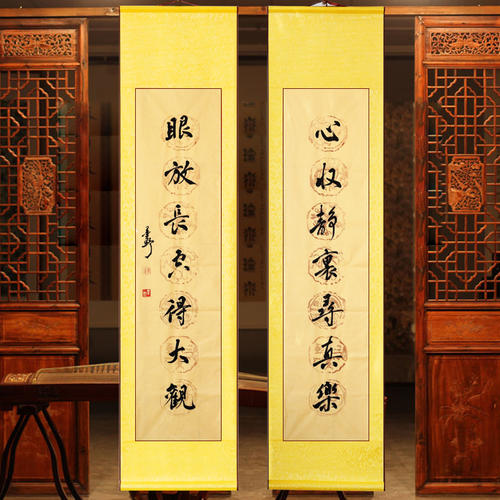 心收静裏尋真樂
眼放長空得大觀